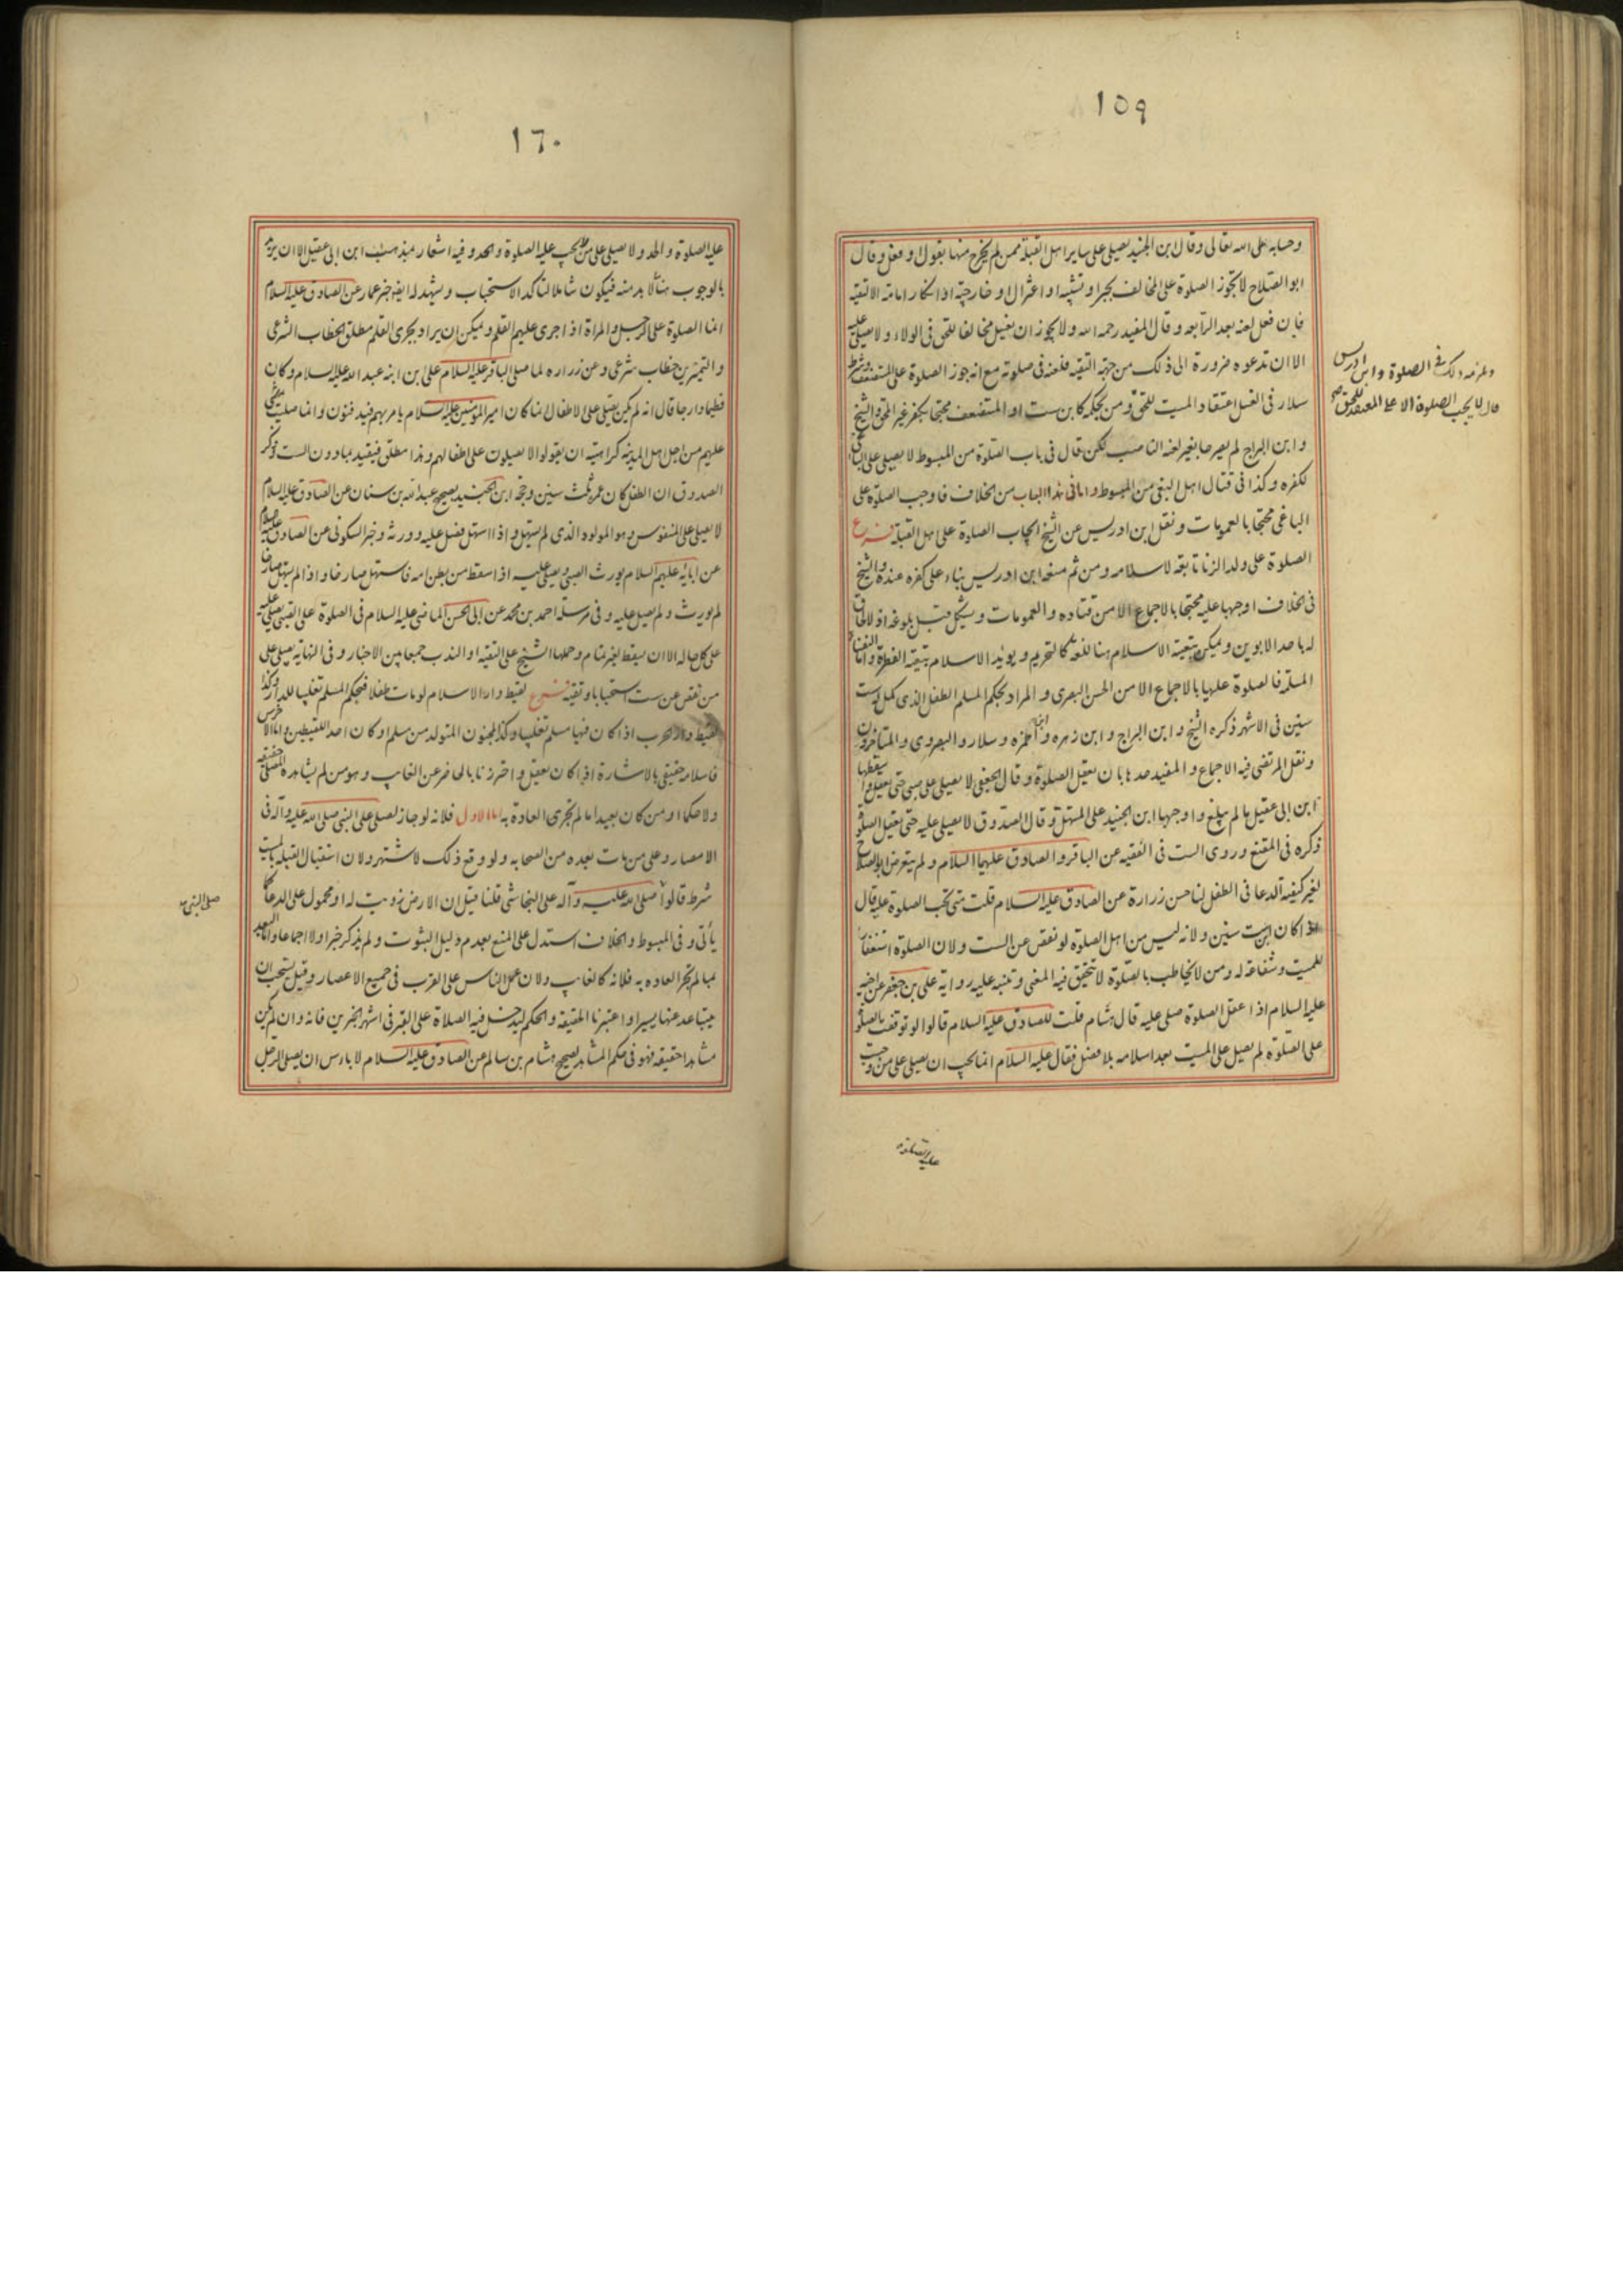 ١٥٩
وحسابه على الله تعالى وقال ابن الجنيد يصلى على ساير اهل القبلة ممن لم يخرج منها بقول او فعل وقال
ابو الصلاح لا تجوز الصلوة على المخالف بجبر او تشبيه او اعتزال او خارجية او انكار امامة الا لتقية
فان فعل لعنه بعد الرابعة وقال المفيد رحمه الله ولا يجوز ان يغسل مخالفا للحق فى الولاء ولا يصلى عليه
الا ان تدعوه ضرورة الى ذلك من جهة التقية فلعنه فى صلوته مع انه جوز الصلوة على المستضعف وشرط
سلار فى الغسل اعتقاد الميت للحق ومن بحكمه كابن ست او المستضعف محتجا بكفر غير المحق والشيخ
وابن البراج لم يصرحا بغير لعنه الناصب لكن قال فى باب الصلوة من المبسوط لا يصلى على الباغى
لكفره وكذا فى قتال اهل البغى من المبسوط واما فى هذا الباب من الخلاف فاوجب الصلوة على
الباغى محتجا بالعمومات ونقل ابن ادريس عن الشيخ ايجاب الصلوة على اهل القبلة فرع
الصلوة على ولد الزنا تابعة لاسلامه ومن ثم منعه ابن ادريس بناء على كفره عنده والشيخ
فى الخلاف اوجبها عليه محتجا بالاجماع الا من قتاده والعمومات ويشكل قبل بلوغه اذ لا لحاق
له باحد الابوين ويمكن تبعية الاسلام هنا للغة كالتحريم ويؤيد الاسلام تبعية الفطرة واما النفساء
المسلمة فالصلوة عليها بالاجماع الا من الحسن البصرى والمراد بحكم المسلم الطفل الذى كمل له ست
سنين فى الاشهر ذكره الشيخ وابن البراج وابن زهره وابن حمزه وسلار والبصروى والمتاخرون
ونقل المرتضى فيه الاجماع والمفيد حده بان يعقل الصلوة وقال الجعفى لا يصلى على صبى حتى يعقل واسقطها
ابن ابى عقيل ما لم يبلغ واوجبها ابن الجنيد على المستهل وقال الصدوق لا يصلى عليه حتى يعقل الصلوة
ذكره فى المقنع وروى الست فى الفقيه عن الباقر والصادق عليهما السلام ولم يتعرض ابو الصلاح
لغير كيفية الدعا فى الطفل لنا حسن زرارة عن الصادق عليه السلام قلت متى تجب الصلوة عليه قال
اذا كان ابن ست سنين ولانه ليس من اهل الصلوة لو نقص عن الست ولان الصلوة استغفار
للميت وشفاعة له ومن لا يخاطب بالصلوة لا تتحقق فيه المعنى وتنبه عليه رواية على بن جعفر عن اخيه
عليه السلام اذا عقل الصلوة صلى عليه قال هشام قلت للصادق عليه السلام قالوا لو توقفت الصلوة
على الصلوة لم يصل على الميت بعد اسلامه بلا فصل فقال عليه السلام انما يجب ان يصلى على من وجبت
فى الصلوة وابن ادريس
قال لا يجب الصلوة الا على المعتقد للحق
عليه الصلوة
١٦٠
عليه الصلوة والحد ولا يصلى على من لم يجب عليه الصلوة والحد وفيه اشعار بمذهب ابن ابى عقيل الا ان يريد
بالوجوب هنا ما لا بد منه فيكون شاملا لتاكد الاستحباب ويشهد له ايضا خبر عمار عن الصادق عليه السلام
انما الصلوة على الرجل والمراة اذا جرى عليهم القلم ويمكن ان يراد بجرى القلم مطلق الخطاب الشرعى
والتمرين خطاب شرعى وعن زراره لما صلى الباقر عليه السلام على بن ابنه عبد الله عليه السلام وكان
فطيما دارجا قال انه لم يكن يصلى على الاطفال انما كان امير المؤمنين عليه السلام يامر بهم فيدفنون وانما صليت
عليهم من اجل اهل المدينة كراهية ان يقولوا لا يصلون على اطفالهم وهذا مطلق فيقيد بما دون الست وذكر
الصدوق ان الطفل كان عمره ثلث سنين وحجة ابن الجنيد بصحيح عبد الله بن سنان عن الصادق عليه السلام
لا يصلى على المنفوس وهو المولود الذى لم يستهل واذا استهل فصل عليه وورثه وخبر السكونى عن الصادق عليه السلام
عن ابائه عليهم السلام يورث الصبى ويصلى عليه اذا سقط من بطن امه فاستهل صارخا واذا لم يستهل صارخا
لم يورث ولم يصل عليه وفى مرسلة احمد بن محمد عن ابى الحسن الماضى عليه السلام فى الصلوة على الصبى يصلى عليه
على كل حال الا ان يسقط لغير تمام وحملها الشيخ على التقية او الندب جمعا بين الاخبار وفى النهاية يصلى على
من نقص عن ست استحبابا وتقية فرع لقيط دار الاسلام لو مات طفلا فبحكم المسلم تغليبا للدار وكذا
لقيط دار الحرب اذا كان فيها مسلم تغليبا وكذا المجنون المتولد من مسلم او كان احد اللقيطين واما الاخرس
فاسلامه حقيقى بالاشارة اذا كان يعقل واحترزنا بالحاضر عن الغايب وهو من لم يشاهده المصلى حقيقة
ولا حكما او من كان بعيدا ما لم تجرى العادة به اما الاول فلانه لو جاز لصلى على النبى صلى الله عليه وآله فى
الامصار وعلى من مات بعده من الصحابه ولو وقع ذلك لاشتهر ولان استقبال القبلة بالميت
شرط قالوا صلى الله عليه وآله على النجاشى قلنا قيل ان الارض زويت له او محمول على الدعا كما
يأتى وفى المبسوط والخلاف استدل على المنع بعدم دليل الثبوت ولم يذكر خبرا ولا اجماعا واما البعيد
بما لم تجر العاده به فلانه كالغايب ولان عمل الناس على القرب فى جميع الاعصار وقيل يستحب ان
يتباعد عنها يسيرا واعتبرنا الحقيقة والحكم ليدخل فيه الصلاة على القبر فى اشهر الخبرين فانه وان لم يكن
مشاهدا حقيقة فهو فى حكم المشاهد لصحيح هشام بن سالم عن الصادق عليه السلام لا باس ان يصلى الرجل
صلى النبى